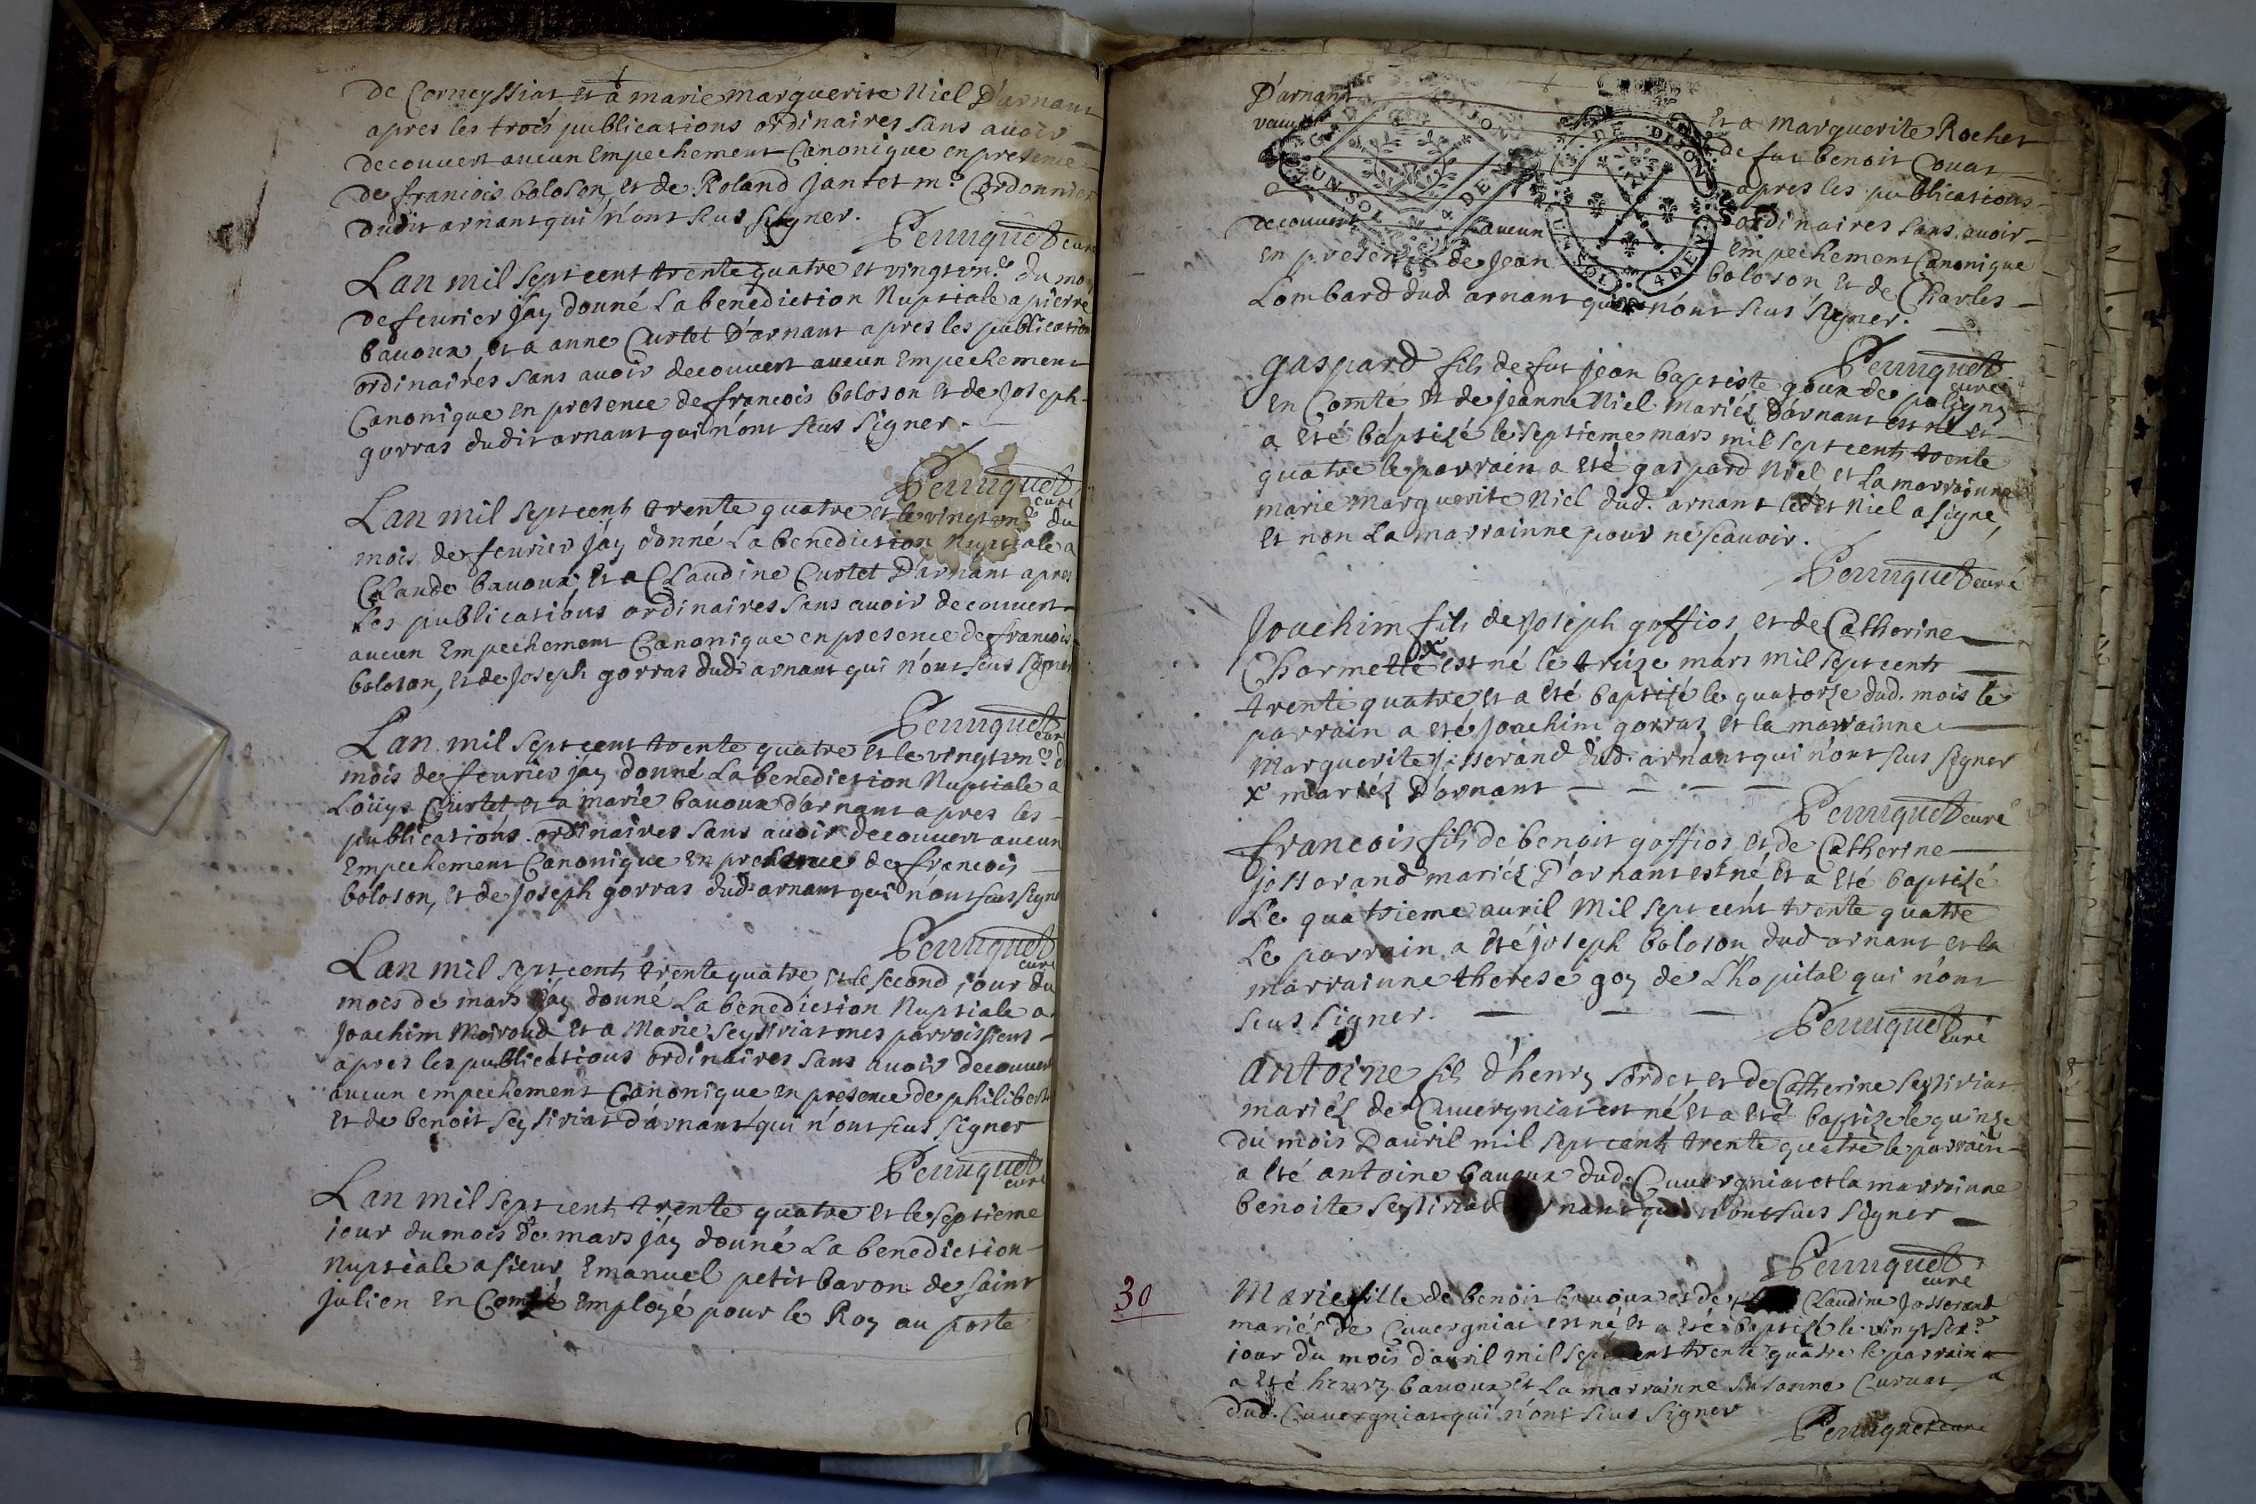 de Corneyssiat, et a marie marguerite Niel D'arnant
apres les trois publications ordinaires sans avoir
decouvert aucun Empechement Canonique en presence
de francois boloson, et de Roland Jantet m.e Cordonnier
dudit arnant qui n'ont sçus signer.
Perruquet curé
Lan mil sept cent trente quatre et vingt un.e du mois
de feurier jay donné La benediction Nuptiale a pierre
bauoux, et a anne Curtet D'arnant apres les publications
ordinaires sans auoir decouvert aucun Empechement
Canonique en presence de francois boloson et de Joseph
gorras dudit arnant qui n'ont sçus signer.
Perruquet curé
Lan mil sept cent trente quatre et le vingt un.e du
mois de feurier jay donné La benediction Nuptiale a
Claude bauoux, et a Claudine Curtet D'arnant apres
Les publications ordinaires sans auoir decouvert
aucun Empechement Canonique en presence de francois
boloson, et de Joseph gorras dud. arnant qui n'ont sçus signer
Perruquet curé
Lan mil sept cent trente quatre et le vingt un.e du
mois de feurier jay donné La benediction Nuptiale a
Loüys Curtet et a marie bauoux d'arnant apres les
publications ordinaires sans auoir decouvert aucun
Empechement Canonique en presence de francois
boloson, et de Joseph gorras dud. arnant qui n'ont sçus signer
Perruquet curé
Lan mil sept cent trente quatre, et le second jour du
mois de mars jay donné La benediction Nuptiale a
Joachim Moiroud et a Marie Seyssiriat mes parroissiens
apres les publications ordinaires sans auoir decouvert
aucun empechement Canonique en presence de philibert
et de benoit Seyssiriat D'arnant qui n'ont sçus signer
Perruquet curé
Lan mil sept cent trente quatre et le septieme
jour du mois de mars jay donné La benediction
Nuptiale a sieur Emanuel petit baron de saint
julien en Comté Employé pour le Roy au poste
D'arnant et a Marguerite Rochet
veuve de fut benoit Couat
apres les publications
ordinaires sans auoir
decouvert aucun Empechement Canonique
en presence de Jean boloson et de Charles
Lombard dud. arnant qui n'ont sçus signer.
Perruquet curé
gaspard fils de fut jean baptiste goux de poligny
en Comté et de jeanne Niel mariéz D'arnant est né et
a été baptizé le septieme mars mil sept cent trente
quatre le parrain a été gaspard Niel, et la marrainne
marie Marguerite Niel dud. arnant ledit Niel a signé,
et non La marrainne pour ne sçauoir.
Perruquet curé
Joachim fils de Joseph goffios, et de Catherine
Charmette x est né le treize mars mil sept cent
trente quatre, et a été baptizé le quatorze dud. mois le
parrain a été Joachim gorras et la marrainne
Marguerite Josserand dud. arnant qui n'ont sçus signer
x mariéz D'arnant
Perruquet curé
francois fils de benoit goffios, et de Catherine
josserand mariéz D'arnant est né et a été baptizé
Le quatrieme auril Mil sept cent trente quatre
Le parrain a été joseph boloson dud. arnant et la
marrainne therese goy de L'hopital qui n'ont
sçus signer.
Perruquet curé
antoine fils d'henry sordet et de Catherine Seyssiriat
mariéz de Cuuergniat est né, et a été baptizé le quinze
du mois D'auril mil sept cent trente quatre le parrain
a été antoine bauoux dud. Cuuergniat et la marrainne
benoite Seyssiriat qui n'ont sçus signer
Perruquet curé
30
Marie fille de benoit bauoux et de Claudine Josserand
mariés de Cuuergniat est né, et a été baptizé le vingt
jour du mois d'auril mil sept cent trente quatre le parrain
a été henry bauoux et La marrainne Susanne Curuat
dud. Cuuergniat qui n'ont sçus signer
Perruquet curé